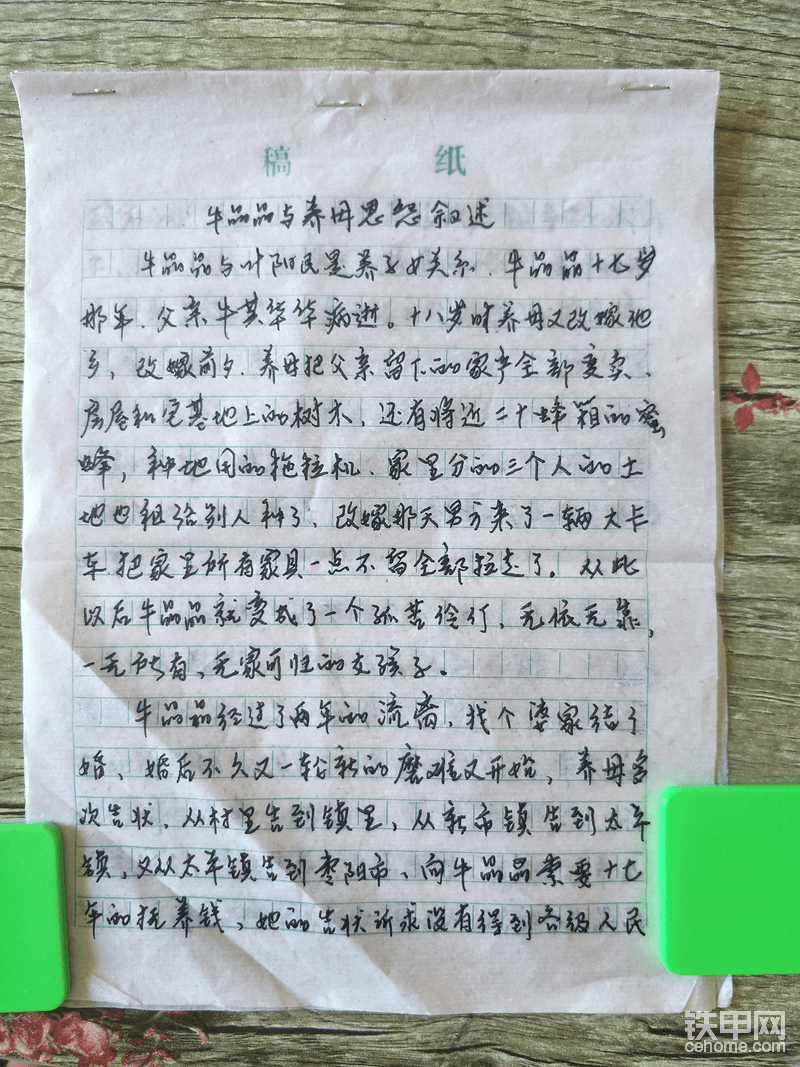 稿 纸
牛品品与养母恩怨叙述
牛品品与叶阳民是养子女关系.牛品品十七岁
那年.父亲牛其华华病逝。十八岁时养母又改嫁他
乡,改嫁前夕.养母把父亲留下的家产全部变卖、
房屋和宅基地上的树木,还有将近二十蜂箱的蜜
蜂,种地用的拖拉机、家里分的三个人的土
地也租给别人种了、改嫁那天男方来了一辆大卡
车.把家里所有家具一点不留全部拉走了。从此
以后牛品品就变成了一个孤苦伶仃,无依无靠,
一无所有,无家可归的女孩子。
牛品品经过了两年的流离,找个婆家结了
婚、婚后不久又一轮新的磨难又开始,养母多
次告状,从村里告到镇里,从新市镇告到太平
镇,又从太平镇告到枣阳市、向牛品品索要十七
年的抚养钱,她的告状诉求没有得到各级人民
铁甲网
cehome.com